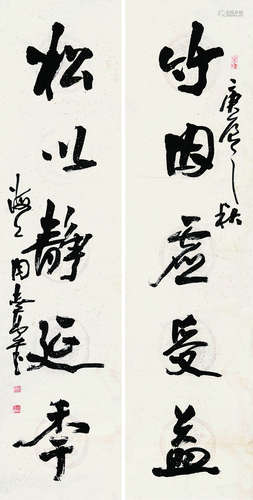 庚辰之秋
竹因虚受益
松以静延年
海上周志高书